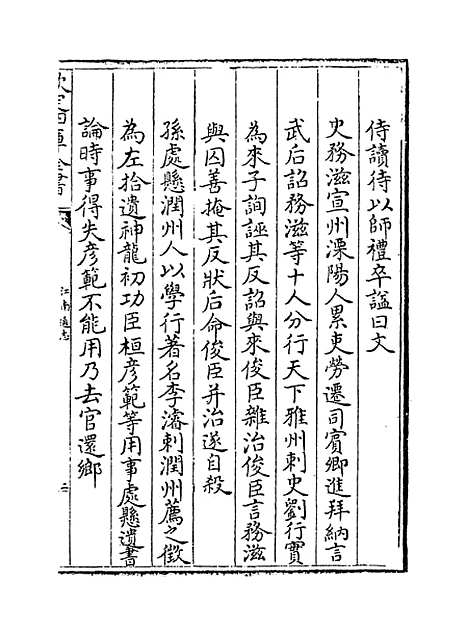 侍讀待以師禮卒諡曰文
史務滋宣州溧陽人累吏勞遷司賓卿進拜納言
武后詔務滋等十人分行天下雅州刺史劉行實
為來子詢誣其反詔與來俊臣雜治俊臣言務滋
與囚善掩其反狀后命俊臣并治遂自殺
孫處懸潤州人以學行著名李濬刺潤州薦之徵
為左拾遺神龍初功臣桓彥範等用事處懸遺書
論時事得失彥範不能用乃去官還鄉
欽定四庫全書
江南通志